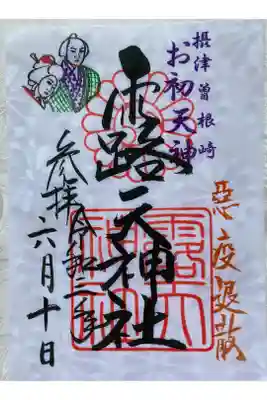 摂津曽根崎
お初天神
惡疫退散
露天神社
参拝 令和二年
六月十日